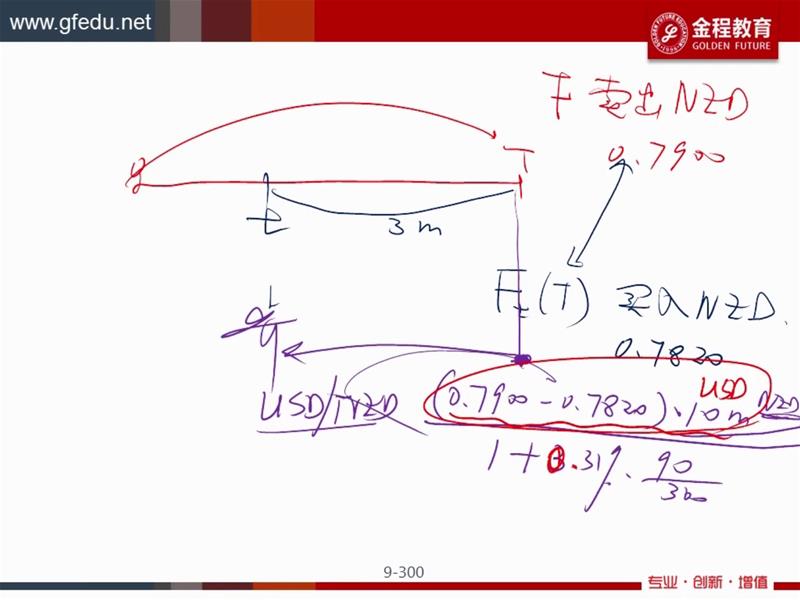 www.gfedu.net
金程教育
GOLDEN FUTURE
F 卖出 NZD
0.7900
T
t
3 m
F_t(T) 买入 NZD.
0.7820
USD/NZD (0.7900 - 0.7820) · 10m NZD
USD
1 + 3.31% · 90/360
9-300
专业·创新·增值